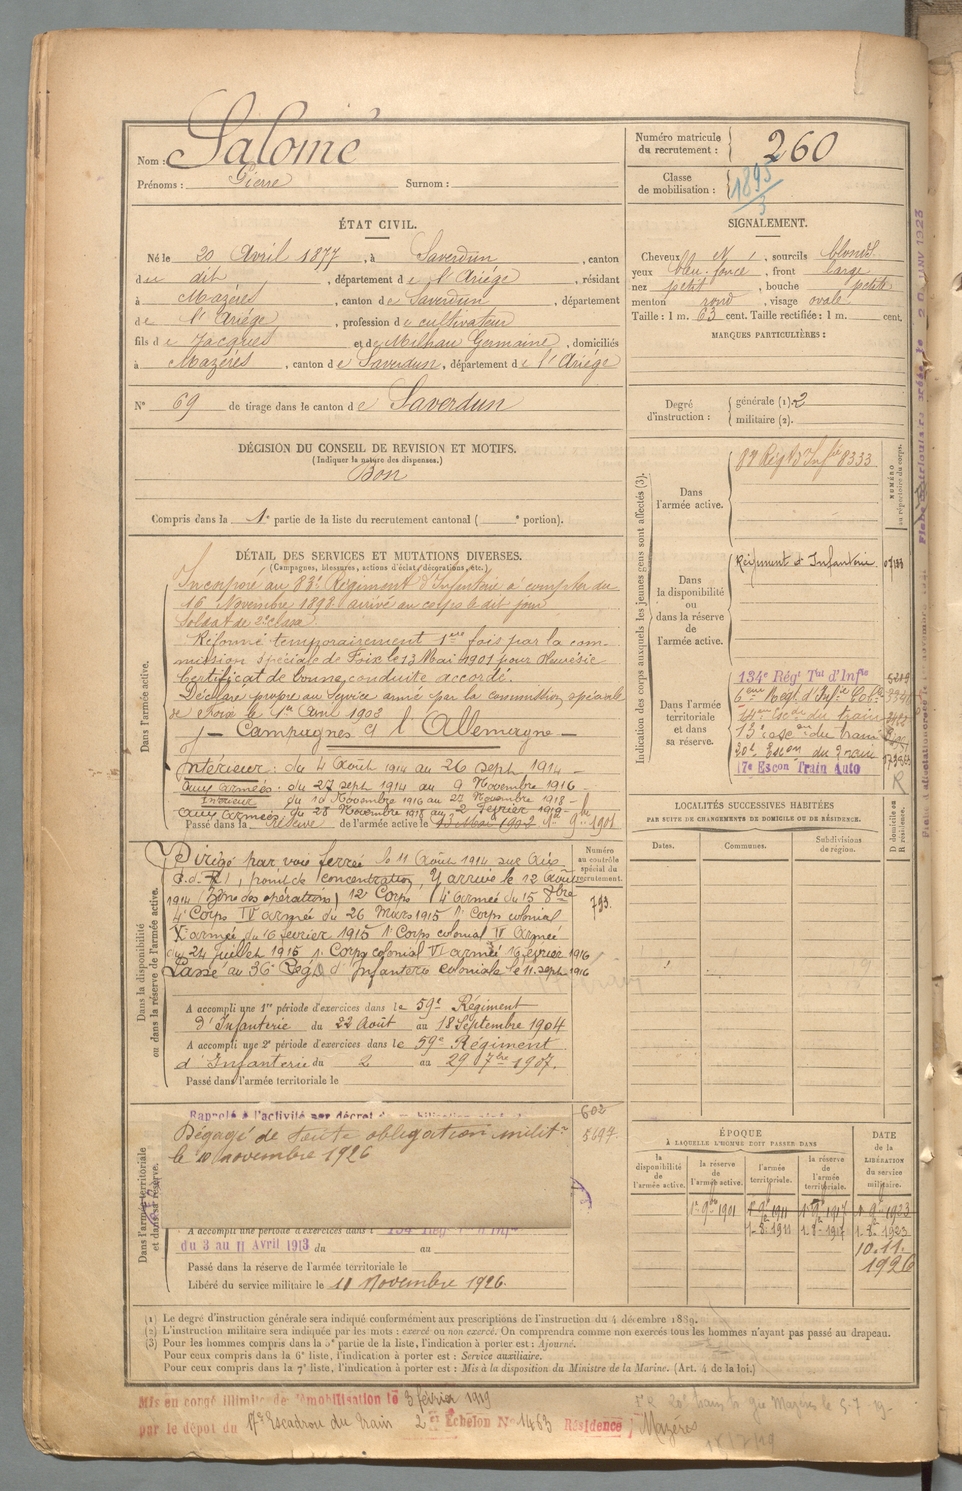 Nom : Salomé
Prénoms : Pierre Surnom :
Numéro matricule du recrutement : 260
Classe de mobilisation : 1895/3
ÉTAT CIVIL.
Né le 20 Avril 1877, à Saverdun, canton
du dit, département de l'Ariége, résidant
à Mazéres, canton de Saverdun, département
de l'Ariége, profession de cultivateur
fils de Jacques et de Milhau Germaine, domiciliés
à Mazéres, canton de Saverdun, département de l'Ariége
N° 69 de tirage dans le canton de Saverdun
SIGNALEMENT.
Cheveux N, sourcils blonds
yeux bleu-foncé, front large
nez petit, bouche petite
menton rond, visage ovale
Taille : 1 m. 63 cent. Taille rectifiée : 1 m. cent.
MARQUES PARTICULIÈRES :
Degré d'instruction : générale (1) 2
militaire (2).
DÉCISION DU CONSEIL DE REVISION ET MOTIFS.
(Indiquer la nature des dispenses.)
Bon
Compris dans la 1e partie de la liste du recrutement cantonal ( e portion).
DÉTAIL DES SERVICES ET MUTATIONS DIVERSES.
(Campagnes, blessures, actions d'éclat, décorations, etc.)
Dans l'armée active.
Incorporé au 83e Régiment d'Infanterie à compter du
16 Novembre 1898 arrivé au corps le dit jour
Soldat de 2e classe
Réformé temporairement 1ere fois par la com-
mission spéciale de Foix le 13 Mai 1901 pour
Certificat de bonne conduite accordé.
Déclaré propre au Service armé par la commission spéciale
de Foix le 1er Avril 1903
Campagnes c/ l'Allemagne
Intérieur : du 4 Août 1914 au 26 sept 1914
aux armées : du 27 sept 1914 au 9 Novembre 1916
Intérieur du 10 Novembre 1916 au 27 Novembre 1918
aux armées du 28 Novembre 1918 au 2 février 1919
Passé dans la réserve de l'armée active le 1er 9bre 1901
Dans la disponibilité ou dans la réserve de l'armée active.
Dirigé par voie ferrée le 11 Août 1914 sur
point de concentration, Y arrive le 12 Août
1914 (Zône des opérations) 12e Corps 4e Armée du 15
4e Corps IV armée du 26 Mars 1915 1r Corps colonial
armée du 16 février 1915 1r Corps colonial II Armée
du 24 juillet 1915 1r Corps colonial VI armée 16 février 1916
Passé au 36e Régt d'Infanterie coloniale le 11 sept 1916
Numéro au contrôle spécial du recrutement.
793.
A accompli une 1re période d'exercices dans le 59e Régiment
d'Infanterie du 22 Août au 18 Septembre 1904
A accompli une 2e période d'exercices dans le 59e Régiment
d'Infanterie du 2 au 29 7bre 1907.
Passé dans l'armée territoriale le
Dans l'armée territoriale et dans sa réserve.
Rappelé à l'activité par décret de mobilisation
602
5697
Dégagé de toute obligation milit.re
le 10 novembre 1926
A accompli une période d'exercices dans l 134e Régt d'Infie
du 3 au 11 Avril 1913 du au
Passé dans la réserve de l'armée territoriale le
Libéré du service militaire le 10 Novembre 1926.
Indication des corps auxquels les jeunes gens sont affectés (3).
NUMÉRO au répertoire du corps.
Dans l'armée active.
83 Régt d'Infie 8333
Dans la disponibilité ou dans la réserve de l'armée active.
Régiment d'Infanterie
Dans l'armée territoriale et dans sa réserve.
134e Régt Tal d'Infie
6eme Régt d'Infie Colle
13e Escon du train
20e Escon du Train
17e Escon Train Auto
R
LOCALITÉS SUCCESSIVES HABITÉES
PAR SUITE DE CHANGEMENTS DE DOMICILE OU DE RÉSIDENCE.
Dates. Communes. Subdivisions de région. D domicile ou R résidence.
ÉPOQUE
À LAQUELLE L'HOMME DOIT PASSER DANS
la disponibilité de l'armée active. la réserve de l'armée active. l'armée territoriale. la réserve de l'armée territoriale. DATE de la LIBÉRATION du service militaire.
1r 9bre 1901 1r 9bre 1911 1r 9bre 1917 1r 9bre 1923
1.8.1911 1.8.1917 1.8.1923
10.11.1926
(1) Le degré d'instruction générale sera indiqué conformément aux prescriptions de l'instruction du 4 décembre 1889.
(2) L'instruction militaire sera indiquée par les mots : exercé ou non exercé. On comprendra comme non exercés tous les hommes n'ayant pas passé au drapeau.
(3) Pour les hommes compris dans la 5e partie de la liste, l'indication à porter est : Ajourné.
Pour ceux compris dans la 6e liste, l'indication à porter est : Service auxiliaire.
Pour ceux compris dans la 7e liste, l'indication à porter est : Mis à la disposition du Ministre de la Marine. (Art. 4 de la loi.)
Mis en congé illimité de démobilisation le 3 février 1919
par le dépot du 17e Escadron du Train 2e Échelon N° 1463 Résidence Mazéres